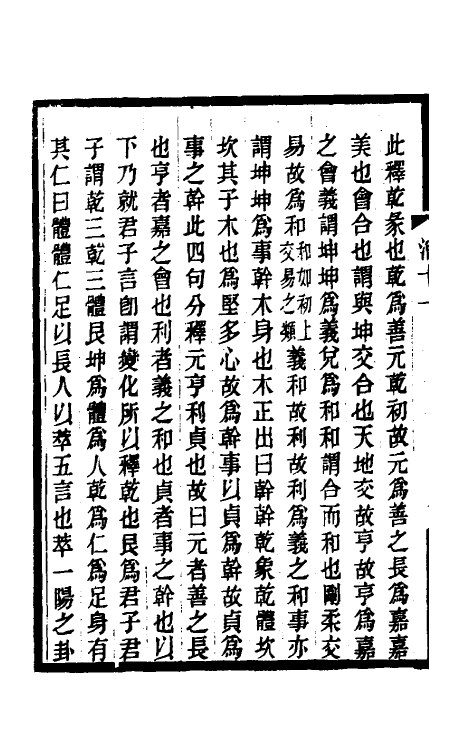 此釋乾彖也乾爲善元乾初故元爲善之長爲嘉嘉
美也會合也謂與坤交合也天地交故亨故亨爲嘉
之會義謂坤坤爲義兌爲和和謂合而和也剛柔交
易故爲和和如初上交易之類義和故利故利爲義之和事亦
謂坤坤爲事幹木身也木正出曰幹幹乾象乾體坎
坎其子木也爲堅多心故爲幹事以貞爲幹故貞爲
事之幹此四句分釋元亨利貞也故曰元者善之長
也亨者嘉之會也利者義之和也貞者事之幹也以
下乃就君子言卽謂變化所以釋乾也艮爲君子君
子謂乾三乾三體艮坤爲體爲人乾爲仁爲足身有
其仁曰體體仁足以長人以萃五言也萃一陽之卦